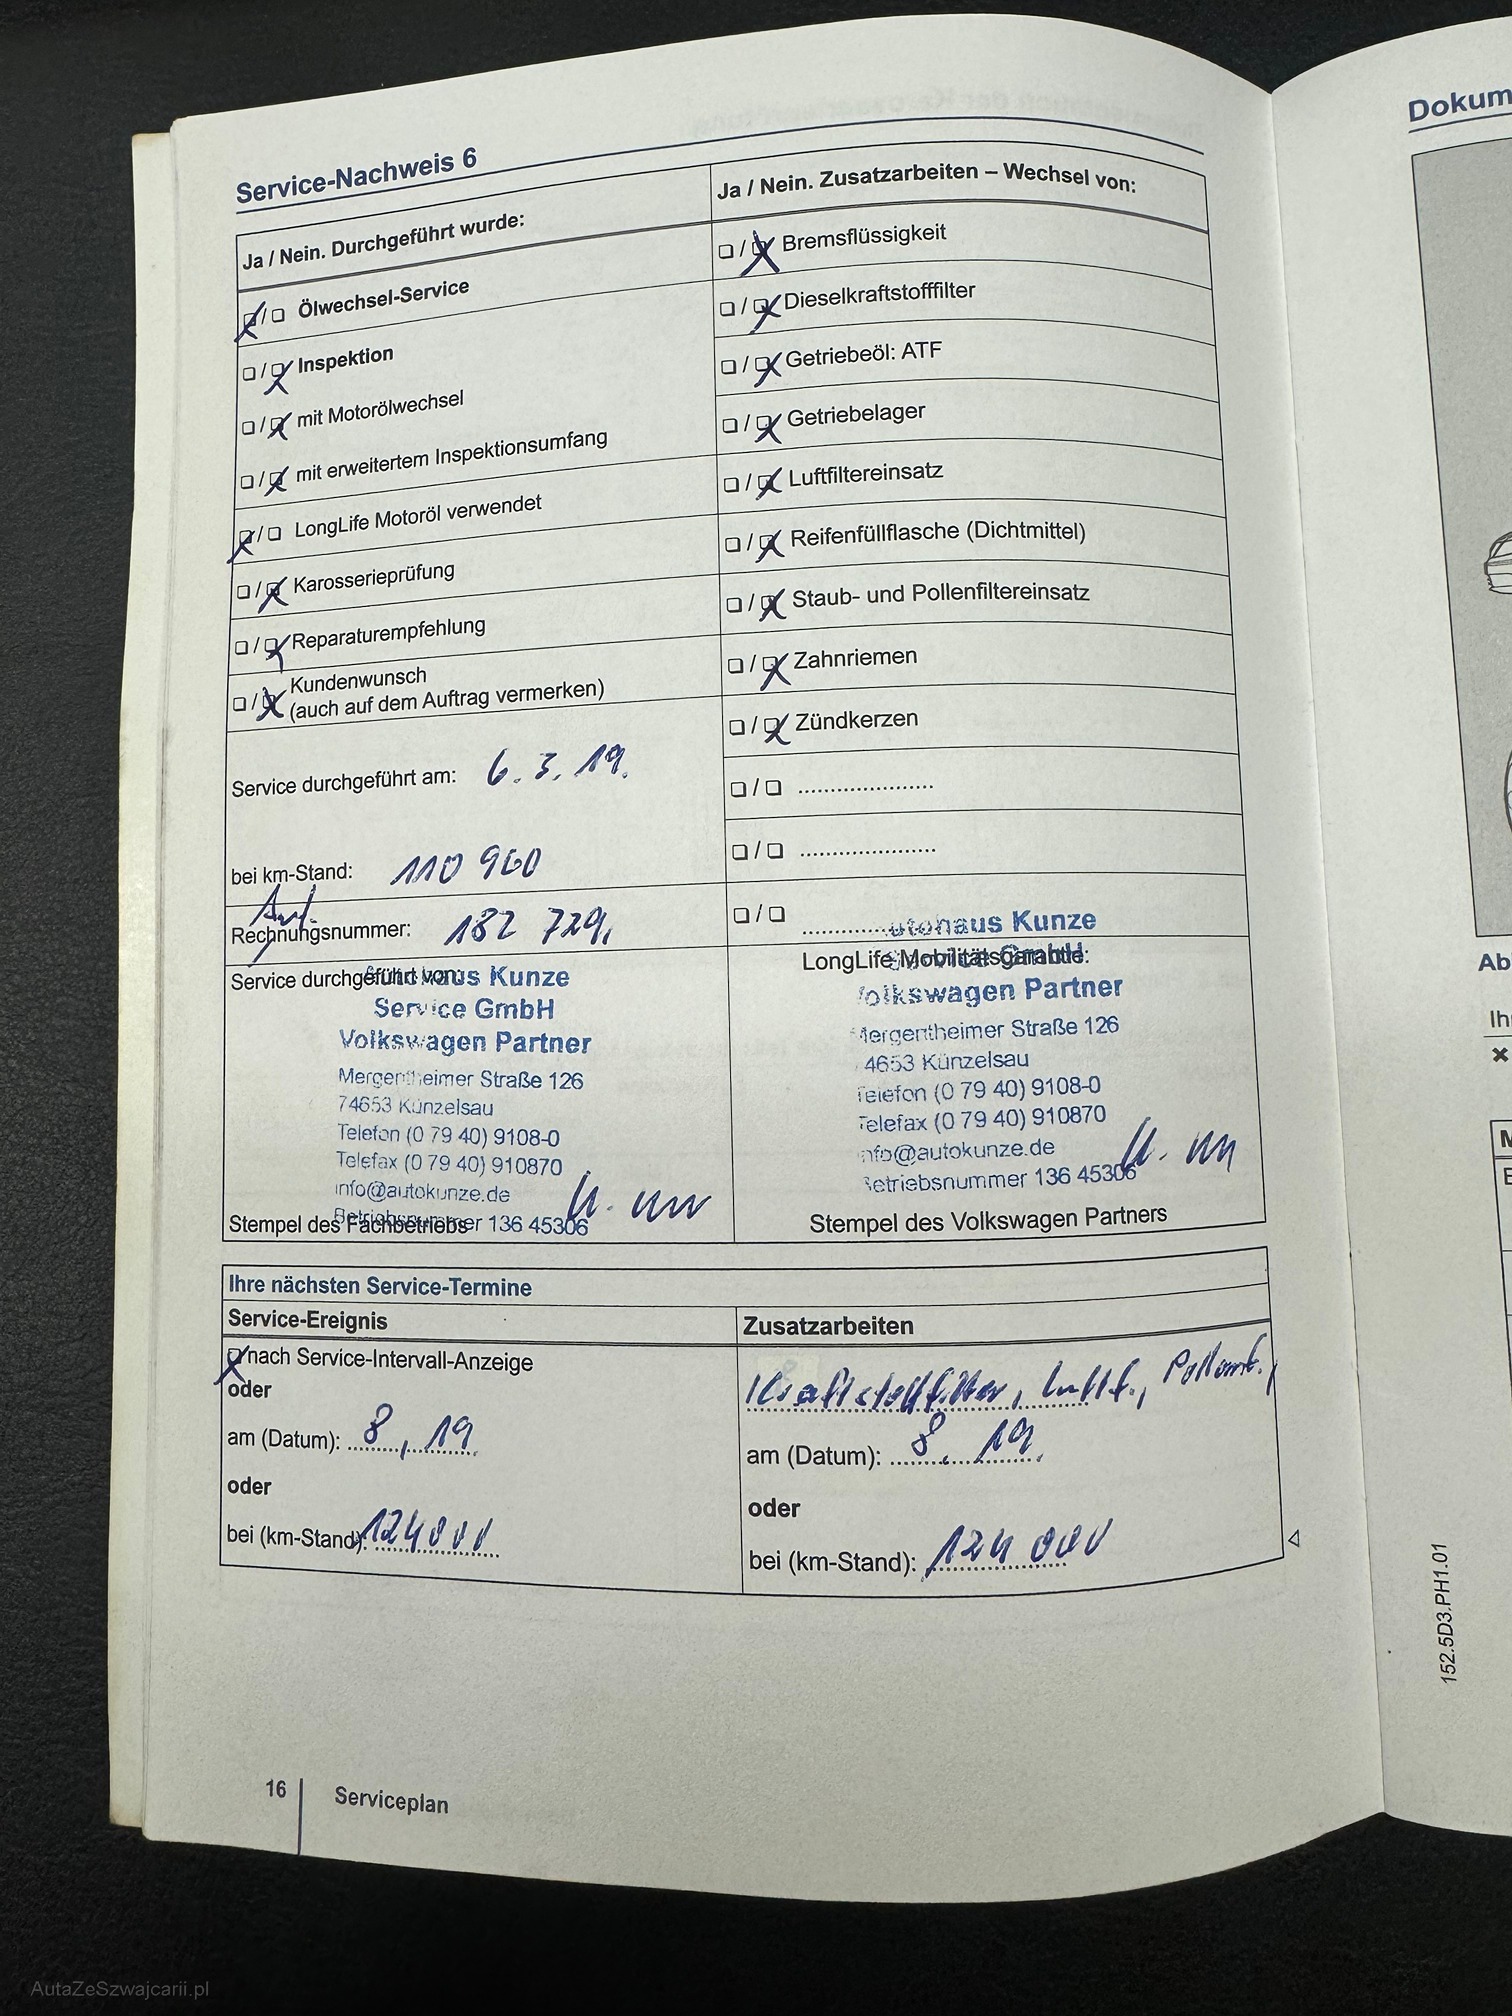 Service-Nachweis 6
Ja / Nein. Durchgeführt wurde:
☒/☐ Ölwechsel-Service
☐/☒ Inspektion
☐/☒ mit Motorölwechsel
☐/☒ mit erweitertem Inspektionsumfang
☒/☐ LongLife Motoröl verwendet
☐/☒ Karosserieprüfung
☐/☒ Reparaturempfehlung
☐/☒ Kundenwunsch
(auch auf dem Auftrag vermerken)
Service durchgeführt am: 6. 3. 19.
bei km-Stand: 110 960
Auf.
Rechnungsnummer: 182 729,
Service durchgeführt von:
Autohaus Kunze
Service GmbH
Volkswagen Partner
Mergentheimer Straße 126
74653 Künzelsau
Telefon (0 79 40) 9108-0
Telefax (0 79 40) 910870
info@autokunze.de
Betriebsnummer 136 45306
Stempel des Fachbetriebs
Ja / Nein. Zusatzarbeiten – Wechsel von:
☐/☒ Bremsflüssigkeit
☐/☒ Dieselkraftstofffilter
☐/☒ Getriebeöl: ATF
☐/☒ Getriebelager
☐/☒ Luftfiltereinsatz
☐/☒ Reifenfüllflasche (Dichtmittel)
☐/☒ Staub- und Pollenfiltereinsatz
☐/☒ Zahnriemen
☐/☒ Zündkerzen
☐/☐ .....................
☐/☐ .....................
☐/☐ .....................
LongLife Mobilitätsgarantie:
Autohaus Kunze
Service GmbH
Volkswagen Partner
Mergentheimer Straße 126
74653 Künzelsau
Telefon (0 79 40) 9108-0
Telefax (0 79 40) 910870
info@autokunze.de
Betriebsnummer 136 45306
Stempel des Volkswagen Partners
Ihre nächsten Service-Termine
Service-Ereignis
☒ nach Service-Intervall-Anzeige
oder
am (Datum): 8, 19.
oder
bei (km-Stand): 124000
Zusatzarbeiten
Kraftstofffilter, Luftf., Pollenf.,
am (Datum): 8. 19.
oder
bei (km-Stand): 124 000
16
Serviceplan
Dokum
Ab
Ih
152.5D3.PH1.01
AutaZeSzwajcarii.pl